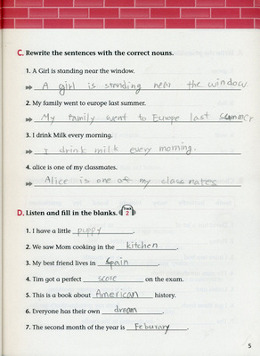 C. Rewrite the sentences with the correct nouns.
1. A Girl is standing near the window.
A girl is standing near the window
2. My family went to europe last summer.
My family went to Europe last summer
3. I drink Milk every morning.
I drink milk every morning.
4. alice is one of my classmates.
Alice is one of my classmates
D. Listen and fill in the blanks. Track 2
1. I have a little puppy.
2. We saw Mom cooking in the kitchen.
3. My best friend lives in Spain.
4. Tim got a perfect score on the exam.
5. This is a book about American history.
6. Everyone has their own dream.
7. The second month of the year is Feburary.
5